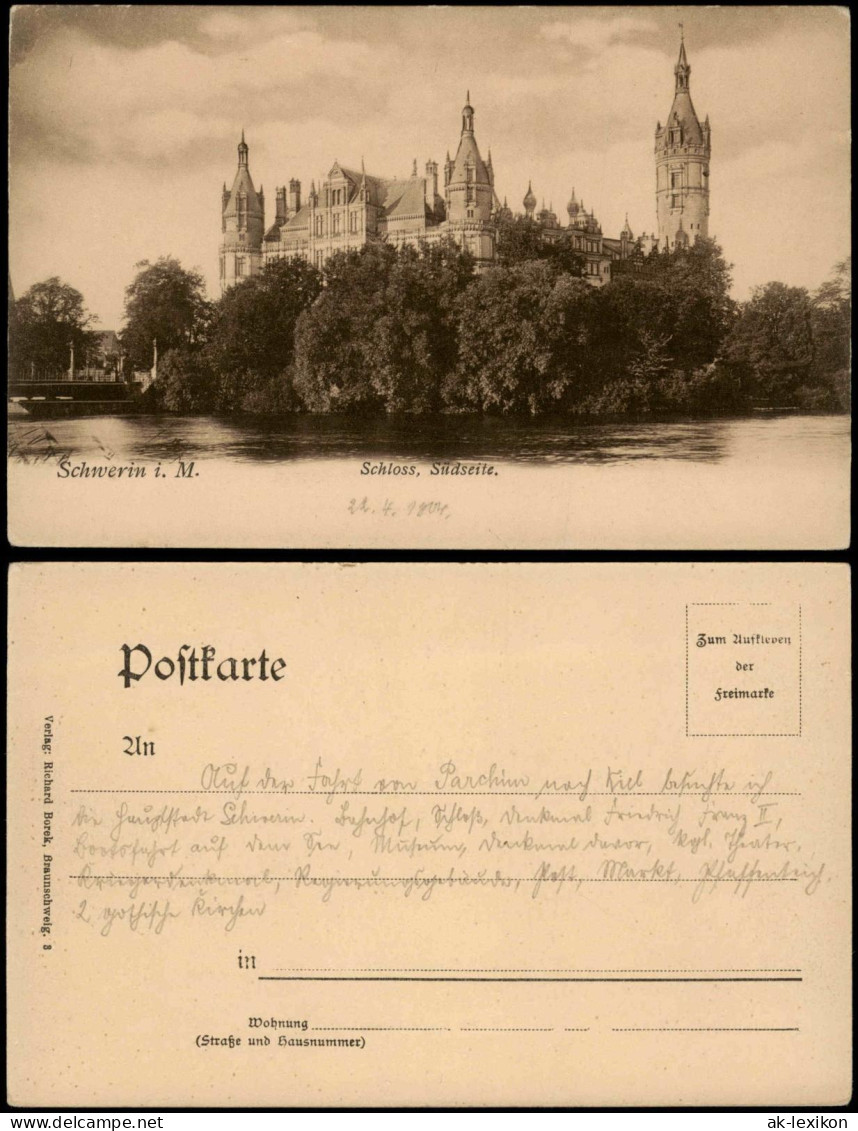 Schwerin i. M.
Schloss, Südseite.
22. 4. 1904.
Postkarte
Zum Aufkleben
der
Freimarke
An
Verlag: Richard Borek, Braunschweig. 3
Auf der Fahrt von Parchim nach Kiel besuchte ich
die Hauptstadt Schwerin. Bahnhof, Schloß, Denkmal Friedrich Franz II,
Bootsfahrt auf dem See, Museum, Denkmal davor, Kgl. Theater,
Kriegerdenkmal, Regierungsgebäude, Post, Markt, Pfaffenteich,
2 gothische Kirchen
in
Wohnung
(Straße und Hausnummer)
delcampe.net
ak-lexikon